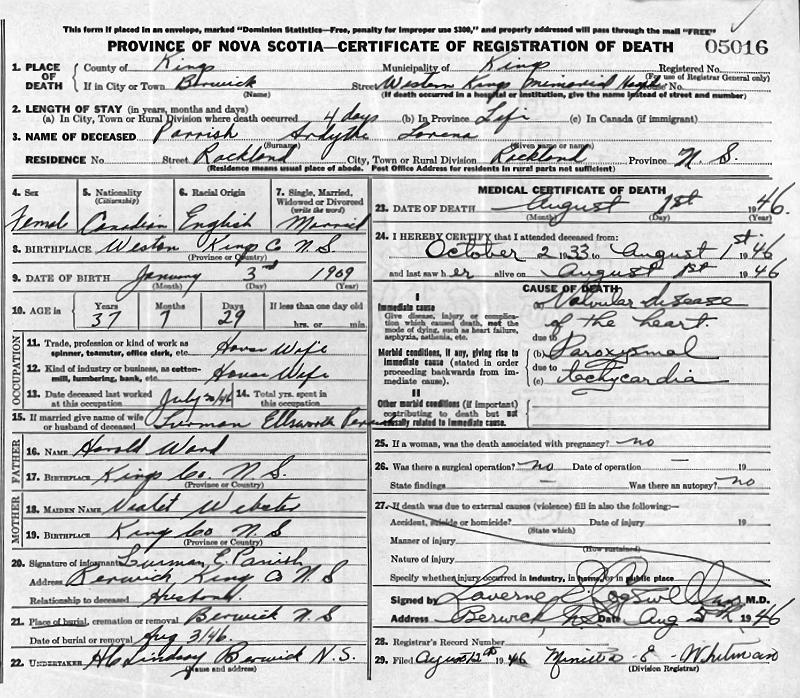 This form if placed in an envelope, marked "Dominion Statistics—Free, penalty for improper use $300," and properly addressed will pass through the mail "FREE"
PROVINCE OF NOVA SCOTIA—CERTIFICATE OF REGISTRATION OF DEATH 05016
1. PLACE OF DEATH { County of Kings Municipality of Kings Registered No.
(For use of Registrar General only)
If in City or Town Berwick Street Western Kings Memorial No.
(Name) (If death occurred in a hospital or institution, give the name instead of street and number)
2. LENGTH OF STAY (in years, months and days)
(a) In City, Town or Rural Division where death occurred 4 days (b) In Province Life (c) In Canada (if immigrant)
3. NAME OF DECEASED Parrish Ardythe Lorena
(Surname) (Given name or names)
RESIDENCE No Street Rockland City, Town or Rural Division Rockland Province N. S.
(Residence means usual place of abode. Post Office Address for residents in rural parts not sufficient)
4. Sex 5. Nationality (Citizenship) 6. Racial Origin 7. Single, Married, Widowed or Divorced (write the word)
Female Canadian English Married
8. BIRTHPLACE Weston Kings Co N S
(Province or Country)
9. DATE OF BIRTH January 3rd 1909
(Month) (Day) (Year)
10. AGE in Years Months Days If less than one day old
37 7 29 hrs. or min.
OCCUPATION
11. Trade, profession or kind of work as spinner, teamster, office clerk, etc. House Wife
12. Kind of industry or business, as cotton-mill, lumbering, bank, etc. House Wife
13. Date deceased last worked at this occupation July 20/46 14. Total yrs. spent in this occupation
15. If married give name of wife or husband of deceased Lurman Ellsworth
FATHER
16. NAME Harold Ward
17. BIRTHPLACE Kings Co. N. S.
(Province or Country)
MOTHER
18. MAIDEN NAME Violet Webster
19. BIRTHPLACE King Co N S
(Province or Country)
20. Signature of informant Lurman E. Parrish
Address Berwick King Co N S
Relationship to deceased Husband
21. Place of burial, cremation or removal Berwick N S
Date of burial or removal Aug 3/46.
22. UNDERTAKER H C Lindsay Berwick N.S.
(Name and address)
MEDICAL CERTIFICATE OF DEATH
23. DATE OF DEATH August 1st 1946.
(Month) (Day) (Year)
24. I HEREBY CERTIFY that I attended deceased from:
October 2 1933 to August 1st. 1946
and last saw her alive on August 1st 1946
CAUSE OF DEATH
I
Immediate cause
Give disease, injury or complication which caused death, not the mode of dying, such as heart failure, asphyxia, asthenia, etc.
(a) Valvular disease of the heart.
due to
Morbid conditions, if any, giving rise to immediate cause (stated in order proceeding backwards from immediate cause).
(b) Paroxysmal
due to
(c) tachycardia
II
Other morbid conditions (if important) contributing to death but not causally related to immediate cause.
25. If a woman, was the death associated with pregnancy? no
26. Was there a surgical operation? no Date of operation — 19
State findings — Was there an autopsy? no
27. If death was due to external causes (violence) fill in also the following:—
Accident, suicide or homicide? Date of injury 19
(State which)
Manner of injury
(How sustained)
Nature of injury
Specify whether injury occurred in industry, in home, or in public place
Signed by Laverne M.D.
Address Berwick N.S. Date Aug 5th 1946
28. Registrar's Record Number
29. Filed August 12th 1946 E. Whitman
(Division Registrar)